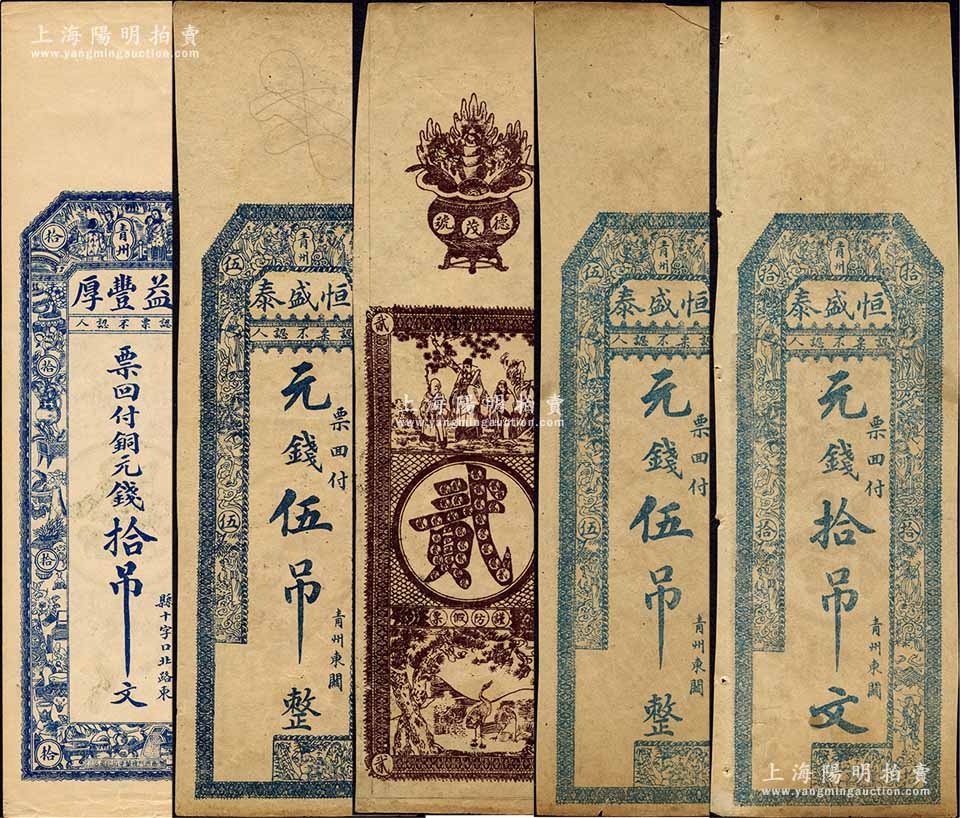 上海陽明拍賣
www.yangmingauction.com
青州
拾
厚豐益
人認不票認
票回付銅元錢拾吊文
縣十字口北路東
拾
拾
拾
青州
伍
泰盛恒
人認不票認
票回付
元錢伍吊整
青州東關
伍
號茂德
貳
上海陽明拍賣
www.yangmingauction.com
貳
票假防謹
貳
青州
伍
泰盛恒
人認不票認
票回付
元錢伍吊整
青州東關
伍
青州
拾
拾
泰盛恒
人認不票認
票回付
元錢拾吊文
青州東關
拾
拾
上海陽明拍賣
www.yangmingauction.com